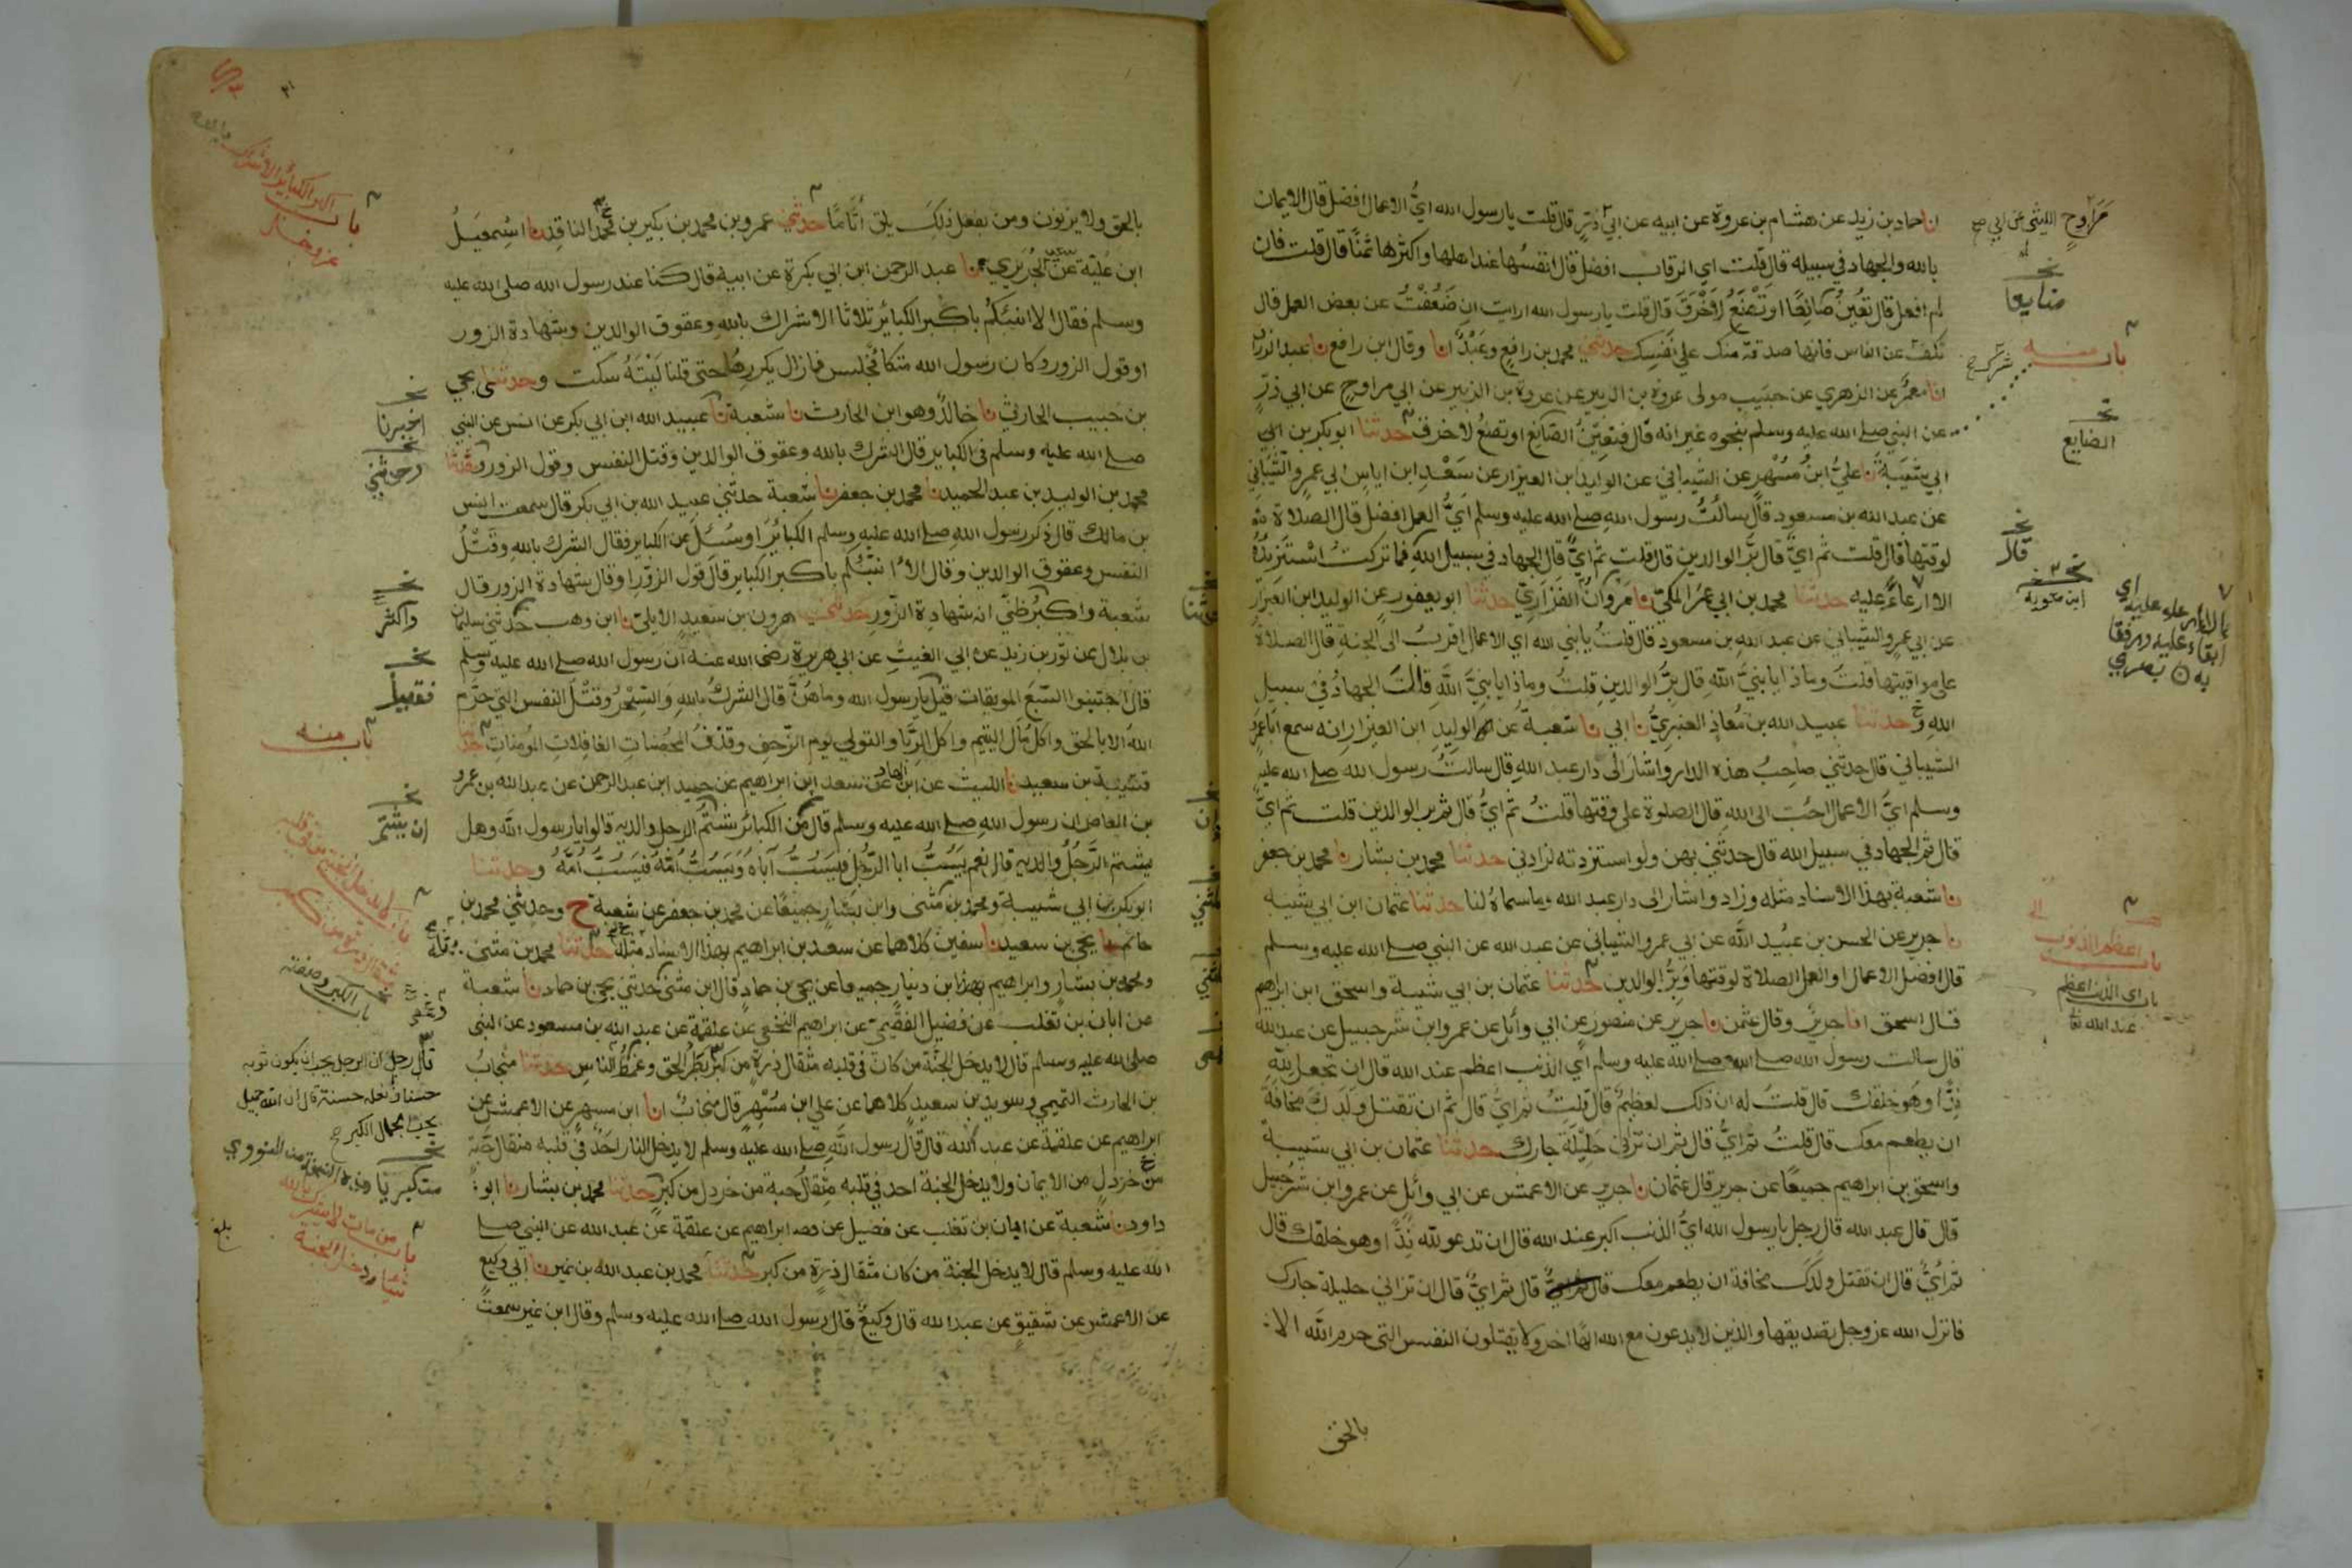 انا حماد بن زيد عن هشام بن عروة عن ابيه عن ابي ذرّ قال قلت يا رسول الله ايُّ الاعمال افضل قال الايمان
بالله والجهاد في سبيله قال قلت اي الرقاب افضل قال انفسُها عند اهلها واكثرها ثمنًا قال قلت فان
لم افعل قال تعينُ صَانِعًا او تصنَعُ لِاَخْرَقَ قال قلت يا رسول الله ارايت ان ضَعُفْتُ عن بعض العمل قال
تكفّ عن الناس فانها صدقة منك على نفسك حدثني محمد بن رافع وعَبْدٌ انا وقال ابن رافع نا عبد الرزاق
انا معمر عن الزهري عن حبيب مولى عروة بن الزبير عن عروة بن الزبير عن ابي مراوح عن ابي ذرّ
عن النبي صلى الله عليه وسلم بنحوه غير انه قال فتعين الصّانع او تصنع لاخرق حدثنا ابو بكر بن ابي
ابي شيبة نا علي ابن مُسْهِر عن الشيباني عن الوليد ابن العيزار عن سَعْدِ ابن اياس ابي عمرو الشيباني
عن عبد الله بن مسعود قال سالتُ رسول الله صلى الله عليه وسلم ايّ العمل افضل قال الصلاة
لوقتها قال قلت ثم ايّ قال برّ الوالدين قال قلت ثم ايٌّ قال الجهاد في سبيل الله فما تركت اسْتَزِيدُهُ
الا ارعاءً عليه حدثنا محمد بن ابي عمر المكي نا مَرْوانُ الفَزَارِيّ حدثنا ابو يعفور عن الوليد ابن العيزار
عن ابي عمرو الشيباني عن عبد الله بن مسعود قال قلت يا نبي الله اي الاعمال اقربُ الى الجنة قال الصلاة
على مواقيتها قلت وماذا يا نبيَّ الله قال برُّ الوالدين قلتُ وماذا يا نبيَّ الله قال الجهادُ في سبيل
الله و حدثنا عبيد الله بن مُعاذ العنبريُّ نا ابي نا شعبةُ عن الوليد ابن العيزار انه سمع ابا عمرو
الشيباني قال حدثني صاحِبُ هذه الدار واشار الى دار عبد الله قال سالتُ رسول الله صلى الله عليه
وسلم ايُّ الاعمال احَبّ الى الله قال الصلوة على وقتها قلتُ ثم ايُّ قال ثم بر الوالدين قلت ثم ايَّ
قال ثم الجهاد في سبيل الله قال حدثني بهن ولو استزدته لزادني حدثنا محمد بن بشار نا محمد بن جعفر
نا شعبة بهذا الاسناد مثله وزاد واشار الى دار عبد الله وما سماهُ لنا حدثنا عثمان ابن ابي شيبة
نا جرير عن الحسن بن عبيد الله عن ابي عمرو الشيباني عن عبد الله عن النبي صلى الله عليه وسلم
قال افضل الاعمال او العمل الصلاة لوقتها وبِرُّ الوالدين حدثنا عثمان بن ابي شيبة واسحق ابن ابراهيم
قال اسحق انا جريرٌ وقال عثمن نا جرير عن منصور عن ابي وائل عن عمرو ابن شرحبيل عن عبد الله
قال سالت رسول الله صلى الله عليه وسلم اي الذنب اعظم عند الله قال ان تجعل لله
نِدًّا وهو خلقك قال قلتُ له ان ذلك لعظيمٌ قال قلتُ ثم ايُّ قال ثم ان تقتل ولدكَ مخافةَ
ان يطعم معك قال قلتُ ثم ايُّ قال ثم ان تزاني حَلِيلَةَ جارك حدثنا عثمان بن ابي شيبة
واسحق بن ابراهيم جميعًا عن جرير قال عثمان نا جرير عن الاعمش عن ابي وائل عن عمرو ابن شرحبيل
قال قال عبد الله قال رجل يا رسول الله ايُّ الذنب اكبر عند الله قال ان تدعو لله نِدًّا وهو خلقك قال
ثم ايُّ قال ان تقتل ولدكَ مخافة ان يطعم معك قال ثم ايُّ قال ان تزاني حليلة جارك
فانزل الله عز وجل تصديقها والذين لا يدعون مع الله الهًا اخر ولا يقتلون النفس التي حرم الله الا
بالحق
مراوح الليثي عن ابي
صانعا
باب منه
الصانع
قال
باب اعظم الذنوب
باب اي الذنب اعظم
عند الله
بالحق ولا يزنون ومن يفعل ذلكَ يلق اَثَامًا حدثني عمرو بن محمد بن بكير بن محمد الناقد نا اسْمعيلُ
ابن عُليّة عن سعيد الجُرَيري نا عبد الرحمن ابن ابي بكرة عن ابيه قال كنا عند رسول الله صلى الله عليه
وسلم فقال الا انبئكم باكبر الكبائر ثلاثا الاشراك بالله وعقوق الوالدين وشهادة الزور
او قول الزور وكان رسول الله متكئا فجلس فما زال يكررها حتى قلنا لَيْتَهُ سكت وحدثني يحيى
بن حبيب الحارثي نا خالدٌ وهو ابن الحارث نا شعبة نا عبيد الله ابن ابي بكر عن انس عن النبي
صلى الله عليه وسلم في الكبائر قال الشرك بالله وعقوق الوالدين وقتل النفس وقول الزور وحدثنا
محمد بن الوليد بن عبد الحميد نا محمد بن جعفر نا شعبة حدثني عبيد الله بن ابي بكر قال سمعت انس
بن مالك قال ذكر رسول الله صلى الله عليه وسلم الكبائرَ او سُئلَ عن الكبائر فقال الشرك بالله وقَتْلُ
النفس وعقوق الوالدين وقال الا انبّئكم باكبر الكبائر قال قول الزور او قال شهادة الزور قال
شعبة واكبرُ ظنّي انه شهادة الزّور حدثني هرون بن سعيد الايليّ نا ابن وهب حدثني سليمان
بن بلال عن ثور بن زيد عن ابي الغيث عن ابي هريرة رضي الله عنه ان رسول الله صلى الله عليه وسلم
قال اجتنبوا السّبعَ الموبقات قيل يا رسول الله وما هُنَّ قال الشركُ بالله والسّحرُ وقتْلُ النفس التي حرّم
اللهُ الا بالحق واكلُ مال اليتيم واكل الرّبا والتولي يوم الزّحف وقذفُ المحصنات الغافلات المؤمنات حدثنا
قتيبة بن سعيد نا الليث عن ابن الهاد عن سعد ابن ابراهيم عن حميد ابن عبد الرحمن عن عبد الله بن عمرو
بن العاص ان رسول الله صلى الله عليه وسلم قال من الكبائر شَتْمُ الرجل والديه قالوا يا رسول الله وهل
يشتم الرَّجُلُ والديه قال نعم يَسُبُّ ابا الرّجُل فيَسُبُّ اَباهُ ويَسُبُّ اُمّهُ فيَسُبُّ اُمَّهُ وحدثنا
ابو بكر بن ابي شيبة ومحمد بن مثنى وابن بشار جميعًا عن محمد بن جعفر عن شعبة ح وحدثني محمد بن
حاتم نا يحيى بن سعيد نا سفين كلاهما عن سعد بن ابراهيم بهذا الاسناد مثله حدثنا محمد بن مثنى
ومحمد بن بشار وابراهيم بن دينار جميعا عن يحيى بن حماد قال ابن مثنى حدثني يحيى بن حماد نا شعبة
عن ابان بن تغلب عن فضيل الفقيمي عن ابراهيم النخعي عن علقمة عن عبد الله بن مسعود عن النبي
صلى الله عليه وسلم قال لا يدخل الجنّة من كان في قلبه مثقال ذرةٍ من كبر بطر الحق وغمط الناس حدثنا منجابُ
بن الحارث التميمي وسويد بن سعيد كلاهما عن علي ابن مسهر قال منجابٌ انا ابن مسهر عن الاعمش عن
ابراهيم عن علقمة عن عبد الله قال قال رسول الله صلى الله عليه وسلم لا يدخل النار احَدٌ في قلبه مثقال حبّة
من خردلٍ من الايمان ولا يدخل الجنة احد في قلبه مثقال حبة من خردل من كبر حدثنا محمد بن بشار نا ابو
داود نا شعبة عن ابان بن تغلب عن فضيل عن ابراهيم عن علقمة عن عبد الله عن النبي صلى
الله عليه وسلم قال لا يدخل الجنة من كان مثقال ذرةٍ من كبر حدثنا محمد بن عبد الله بن نمير نا ابي وكيع
عن الاعمش عن شقيق عن عبد الله قال وكيعٌ قال رسول الله صلى الله عليه وسلم وقال ابن نمير سمعتُ
باب اكبر الكبائر الاشراك بالله
عز وجل
اخبرنا
وحدثني
واكبر
فقيل
باب منه
ان يشتم
باب الكبر وصفته
قال رجل ان الرجل يحب ان يكون ثوبه
حسنا ونعله حسنة قال ان الله جميل
يحب الجمال الكبر
باب من مات لا يشرك بالله
شيئا دخل الجنة
بلغ